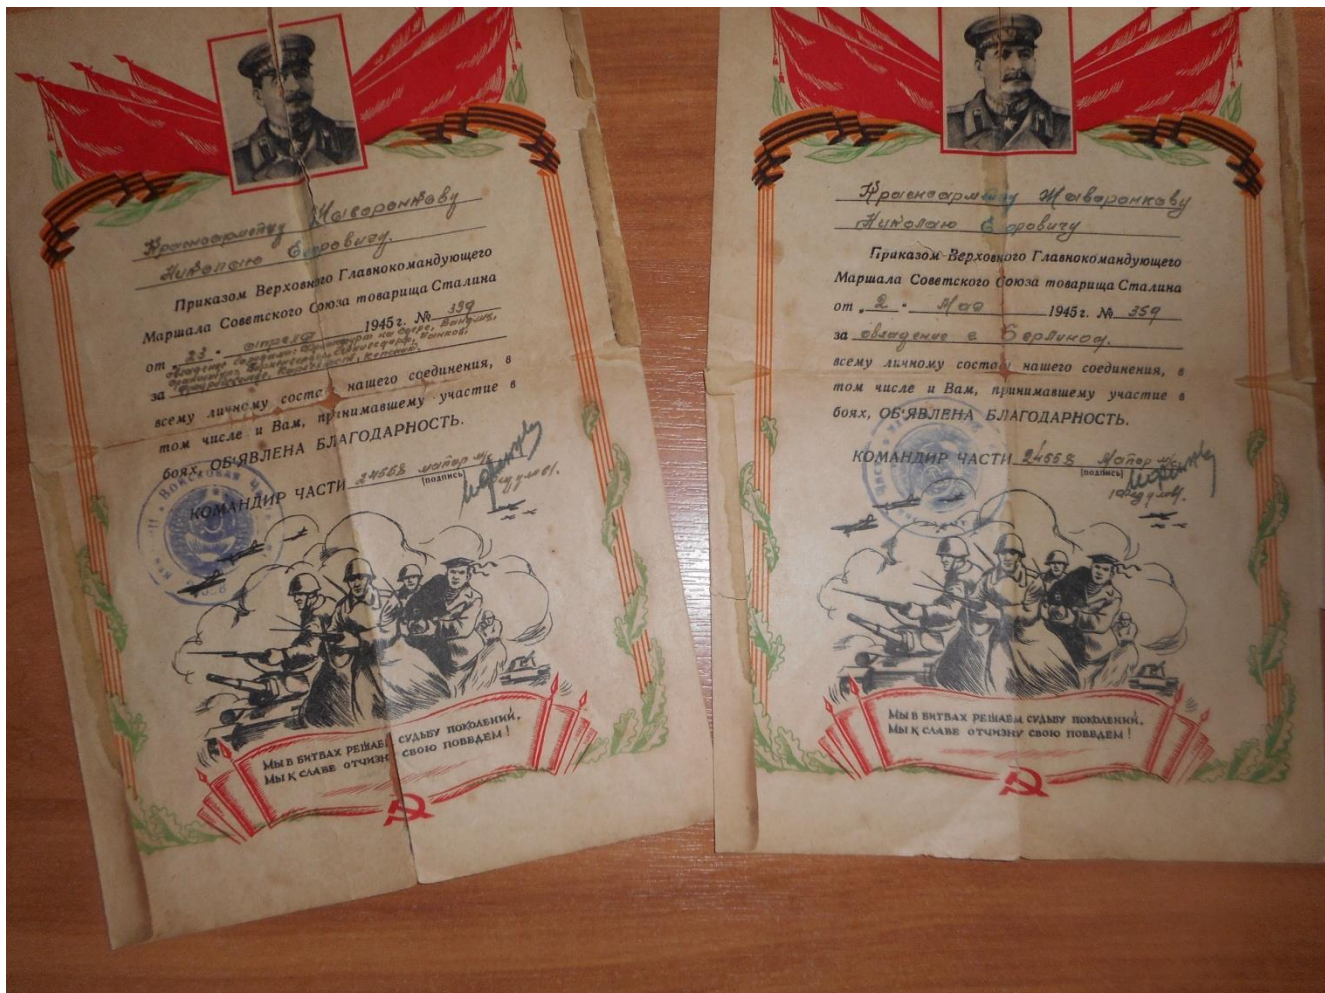 Красноармейцу Жаворонкову
Николаю Егоровичу.
Приказом Верховного Главнокомандующего
Маршала Советского Союза товарища Сталина
от „23" апреля 1945 г. № 339
за овладение городами Франкфурт на Одере, Вандлиц,
Ораниенбург, Биркенвердер, Геннигсдорф, Панков,
Фридрихсфельде, Карлсхорст, Кепеник.
всему личному составу нашего соединения, в
том числе и Вам, принимавшему участие в
боях, ОБ'ЯВЛЕНА БЛАГОДАРНОСТЬ.
КОМАНДИР ЧАСТИ 24558 майор м/с
(подпись)
Войсковая
МЫ В БИТВАХ РЕШАЕМ СУДЬБУ ПОКОЛЕНИЙ,
МЫ К СЛАВЕ ОТЧИЗНУ СВОЮ ПОВЕДЕМ!
Красноармейцу Жаворонкову
Николаю Егоровичу
Приказом Верховного Главнокомандующего
Маршала Советского Союза товарища Сталина
от „2" Мая 1945 г. № 359
за овладение г Берлином.
всему личному составу нашего соединения, в
том числе и Вам, принимавшему участие в
боях, ОБ'ЯВЛЕНА БЛАГОДАРНОСТЬ.
КОМАНДИР ЧАСТИ 24558 Майор м/с
(подпись)
МЫ В БИТВАХ РЕШАЕМ СУДЬБУ ПОКОЛЕНИЙ,
МЫ К СЛАВЕ ОТЧИЗНУ СВОЮ ПОВЕДЕМ!